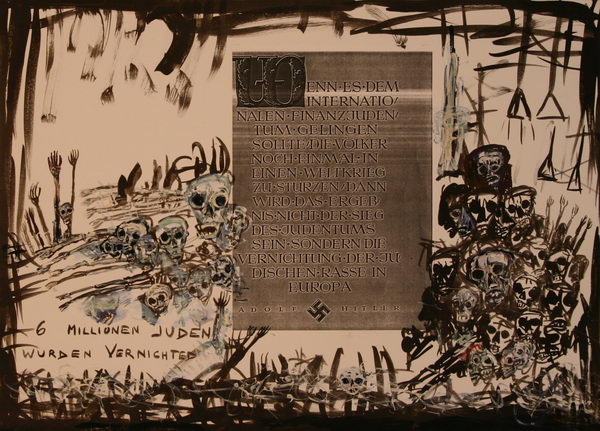 WENN·ES·DEM
INTERNATIO/
NALEN·FINANZJUDEN/
TUM·GELINGEN
SOLLTE/DIE·VÖLKER
NOCH·EINMAL·IN
EINEN·WELTKRIEG
ZU·STÜRZEN/DANN
WIRD·DAS·ERGEB
NIS·NICHT·DER·SIEG
DES·JUDENTUMS
SEIN·SONDERN·DIE
VERNICHTUNG·DER·JÜ
DISCHEN·RASSE·IN
EUROPA
ADOLF HITLER
6 MILLIONEN JUDEN
WURDEN VERNICHTET